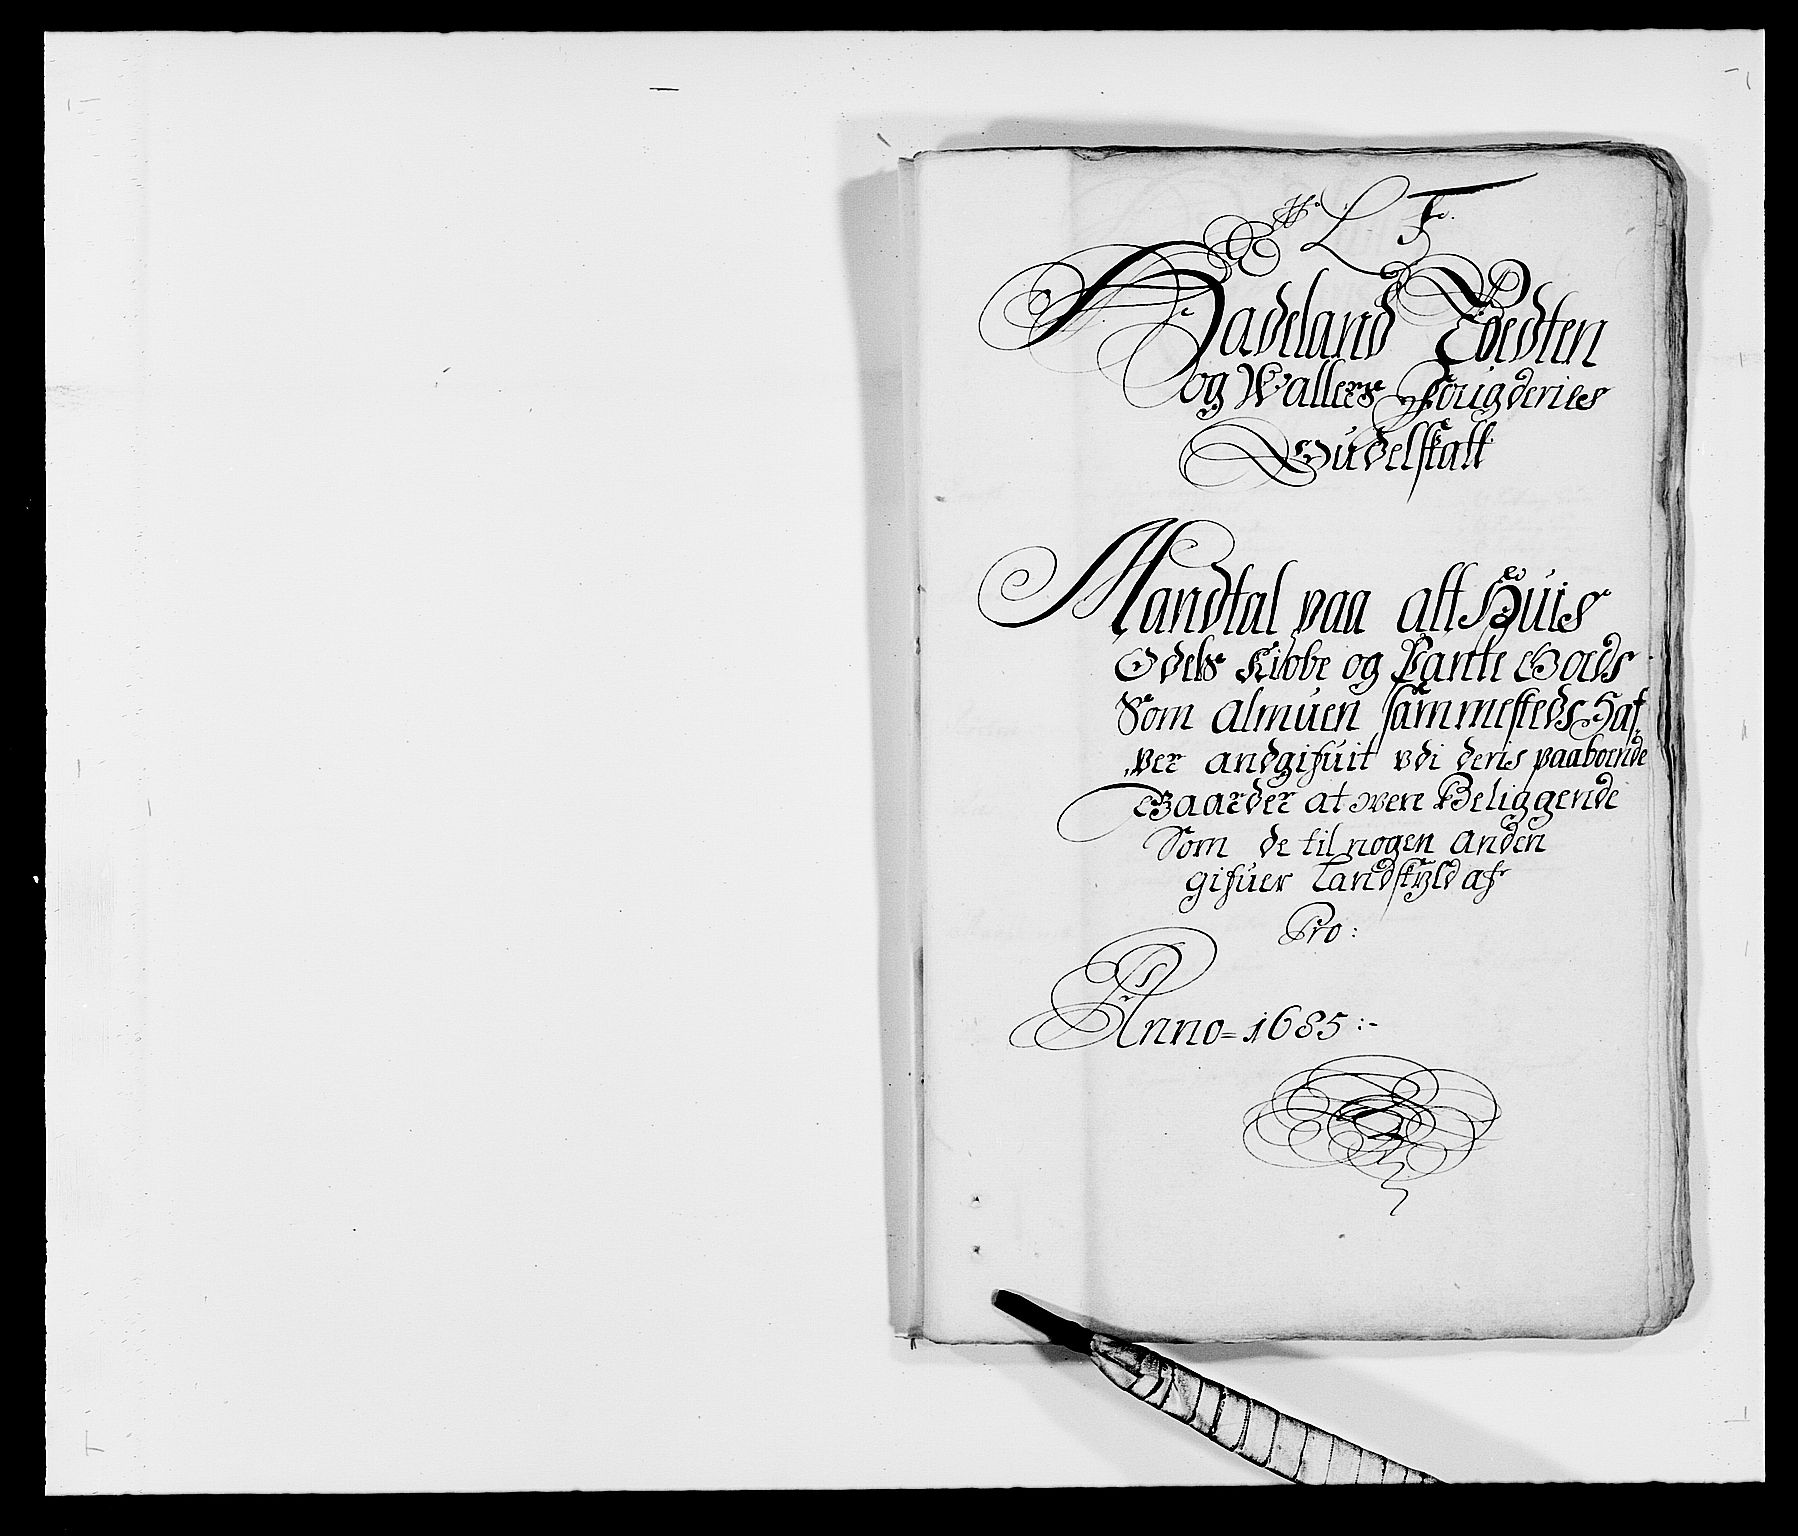 L F
Hadeland Toedten
og Wallers Fougderies
Gudelskatt
Mandtal paa alt Huis
Odels Kiøbe og Pante Goeds
Som Almuen sammesteds Haf
ver andgifuit udi deris paaboende
Gaarder at være Beliggende
Som de til nogen Anden
gifuer Landskyld af
Pro:
Anno = 1685 :-